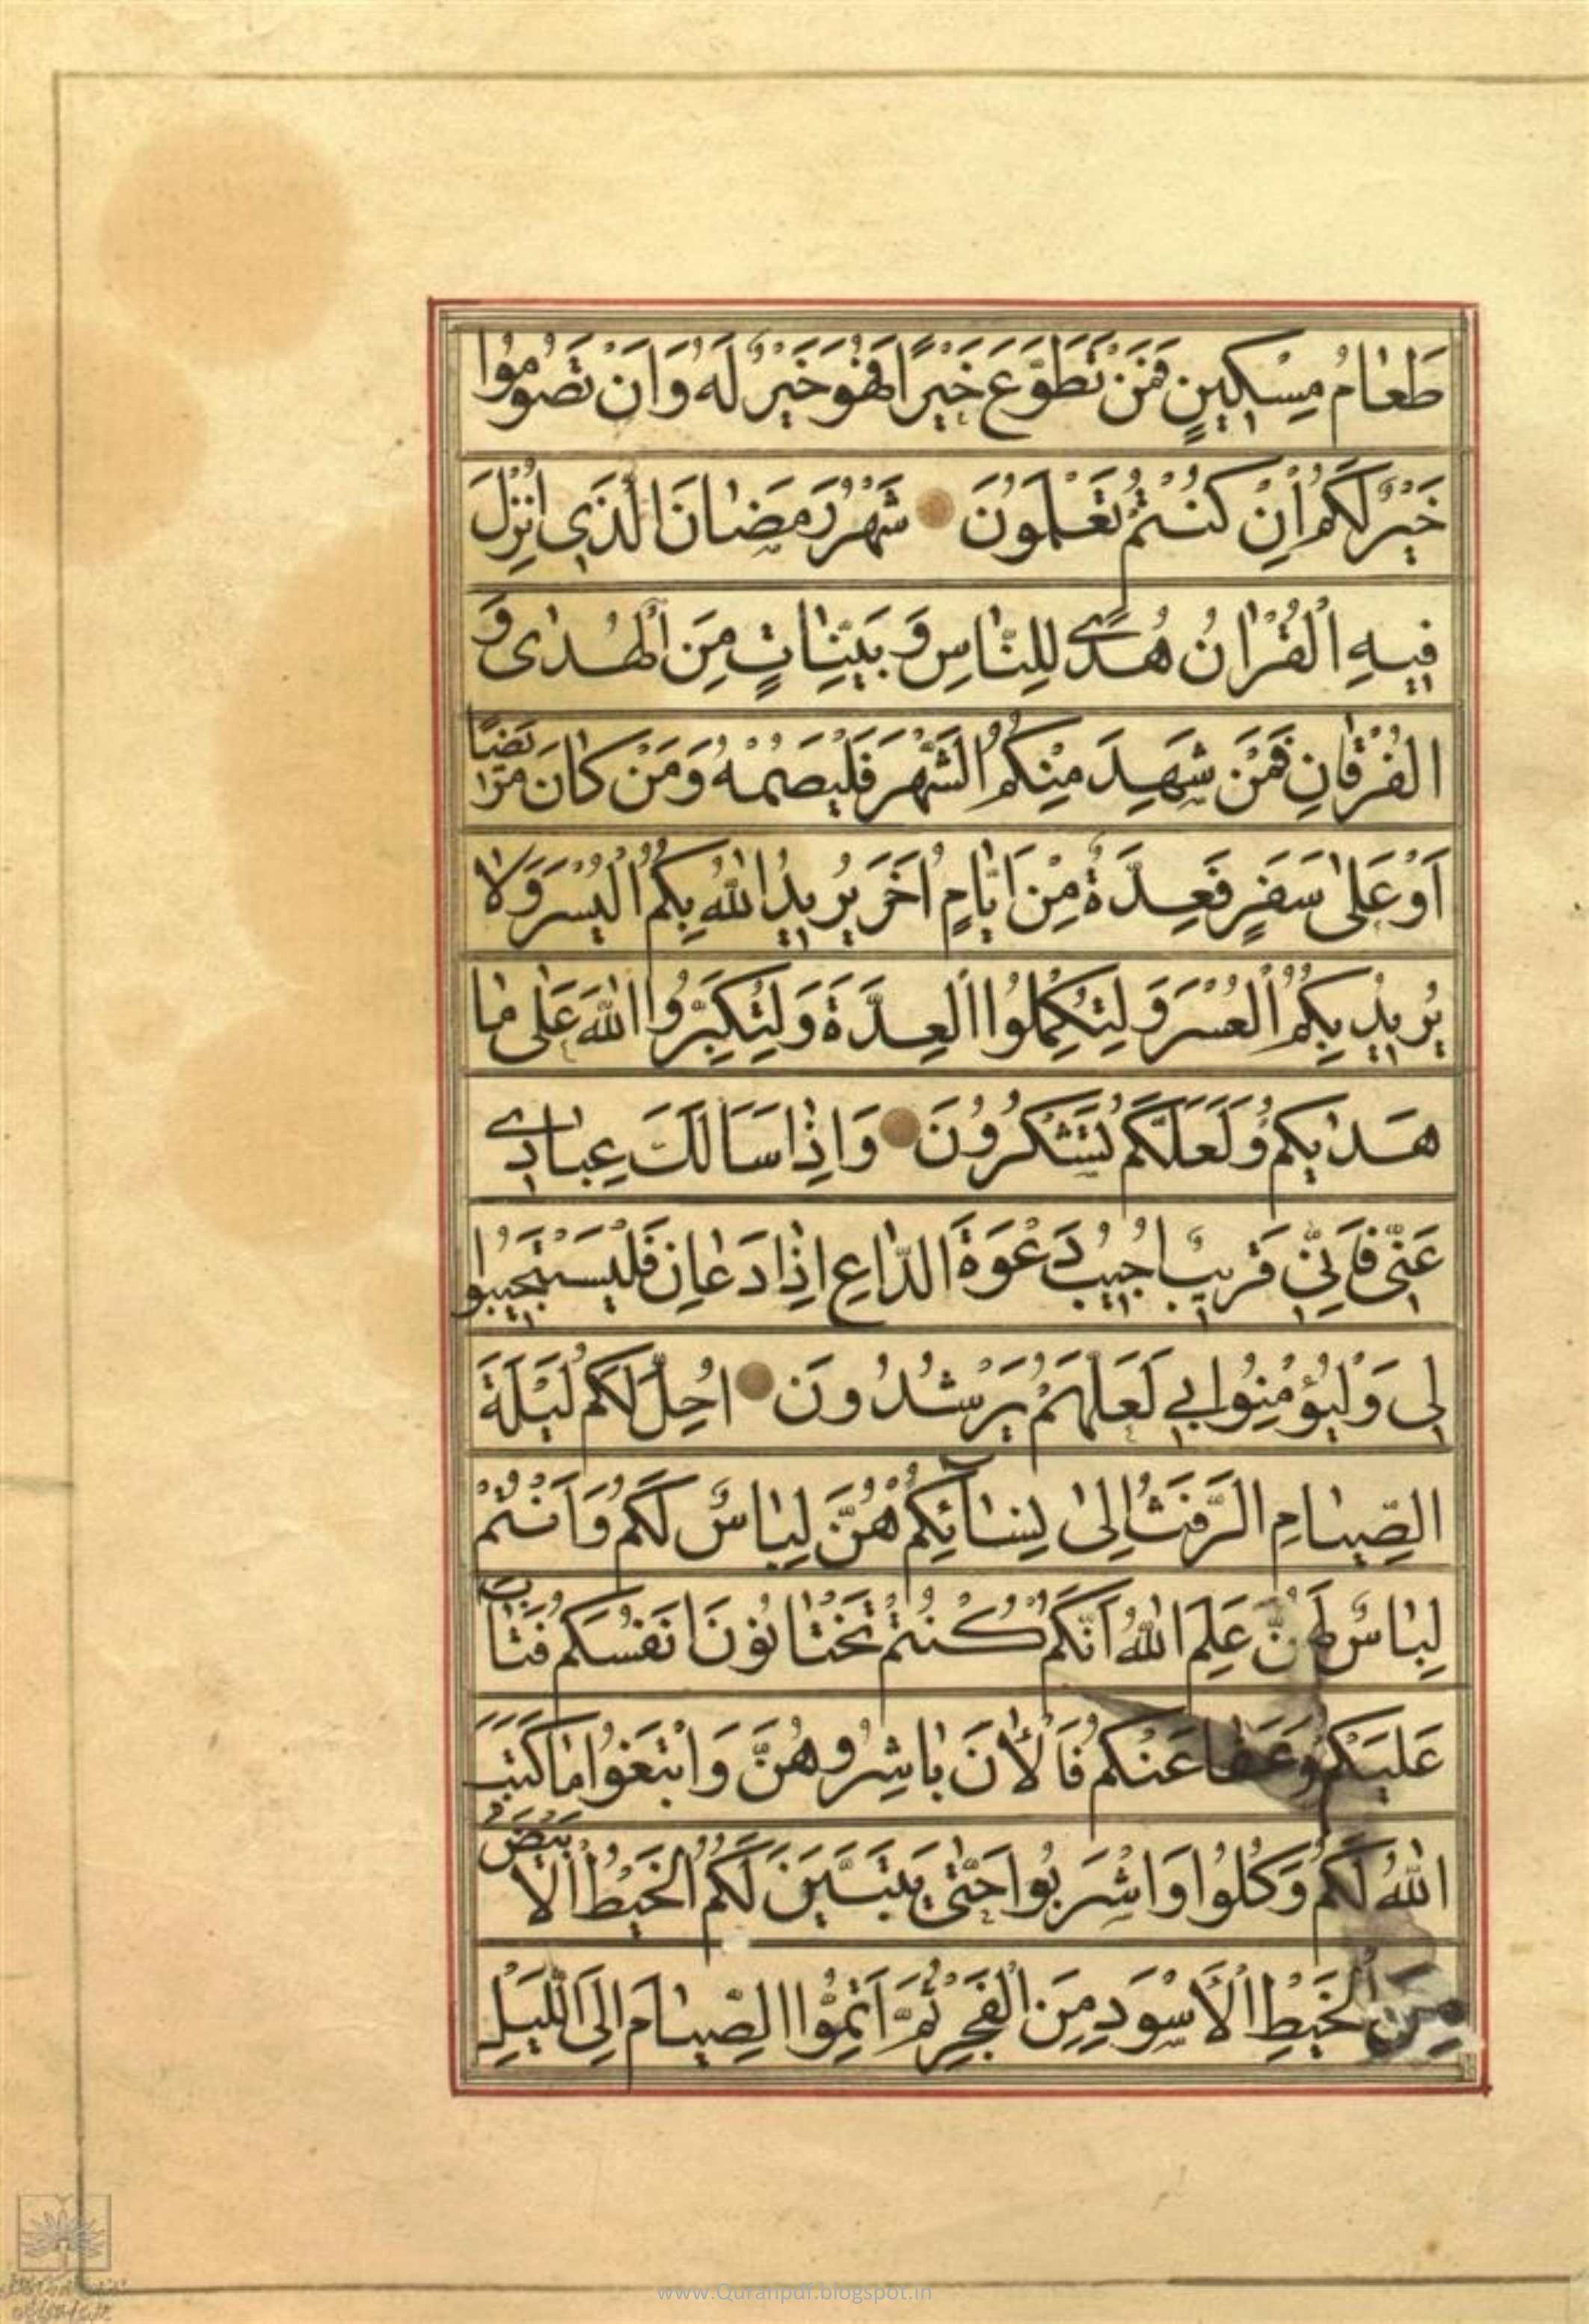 طَعٰامُ مِسْكِينٍ فَمَنْ تَطَوَّعَ خَيْرًا فَهُوَ خَيْرٌ لَهُ وَاَنْ تَصُومُوا
خَيْرٌ لَكُمْ اِنْ كُنْتُمْ تَعْلَمُونَ شَهْرُ رَمَضٰانَ الَّذِي اُنْزِلَ
فِيهِ الْقُرْاٰنُ هُدًى لِلنّٰاسِ وَ بَيِّنٰاتٍ مِنَ الْهُدٰى وَ
الْفُرْقٰانِ فَمَنْ شَهِدَ مِنْكُمُ الشَّهْرَ فَلْيَصُمْهُ وَ مَنْ كٰانَ مَرِيضًا
اَوْ عَلىٰ سَفَرٍ فَعِدَّةٌ مِنْ اَيّٰامٍ اُخَرَ يُرِيدُ اللّٰهُ بِكُمُ الْيُسْرَ وَلاٰ
يُرِيدُ بِكُمُ الْعُسْرَ وَ لِتُكْمِلُوا الْعِدَّةَ وَ لِتُكَبِّرُوا اللّٰهَ عَلىٰ مٰا
هَدٰيكُمْ وَلَعَلَّكُمْ تَشْكُرُونَ وَ اِذٰا سَاَلَكَ عِبٰادِي
عَنِّي فَاِنِّي قَرِيبٌ اُجِيبُ دَعْوَةَ الدّٰاعِ اِذٰا دَعٰانِ فَلْيَسْتَجِيبُوا
لِي وَلْيُؤْمِنُوا بِي لَعَلَّهُمْ يَرْشُدُونَ اُحِلَّ لَكُمْ لَيْلَةَ
الصِّيٰامِ الرَّفَثُ اِلىٰ نِسٰآئِكُمْ هُنَّ لِبٰاسٌ لَكُمْ وَ اَنْتُمْ
لِبٰاسٌ لَهُنَّ عَلِمَ اللّٰهُ اَنَّكُمْ كُنْتُمْ تَخْتٰانُونَ اَنْفُسَكُمْ فَتٰابَ
عَلَيْكُمْ وَعَفٰا عَنْكُمْ فَالْاٰنَ بٰاشِرُوهُنَّ وَ ابْتَغُوا مٰا كَتَبَ
اللّٰهُ لَكُمْ وَ كُلُوا وَ اشْرَبُوا حَتّٰى يَتَبَيَّنَ لَكُمُ الْخَيْطُ الْاَبْيَضُ
مِنَ الْخَيْطِ الْاَسْوَدِ مِنَ الْفَجْرِ ثُمَّ اَتِمُّوا الصِّيٰامَ اِلَى اللَّيْلِ
www.Quranpdf.blogspot.in